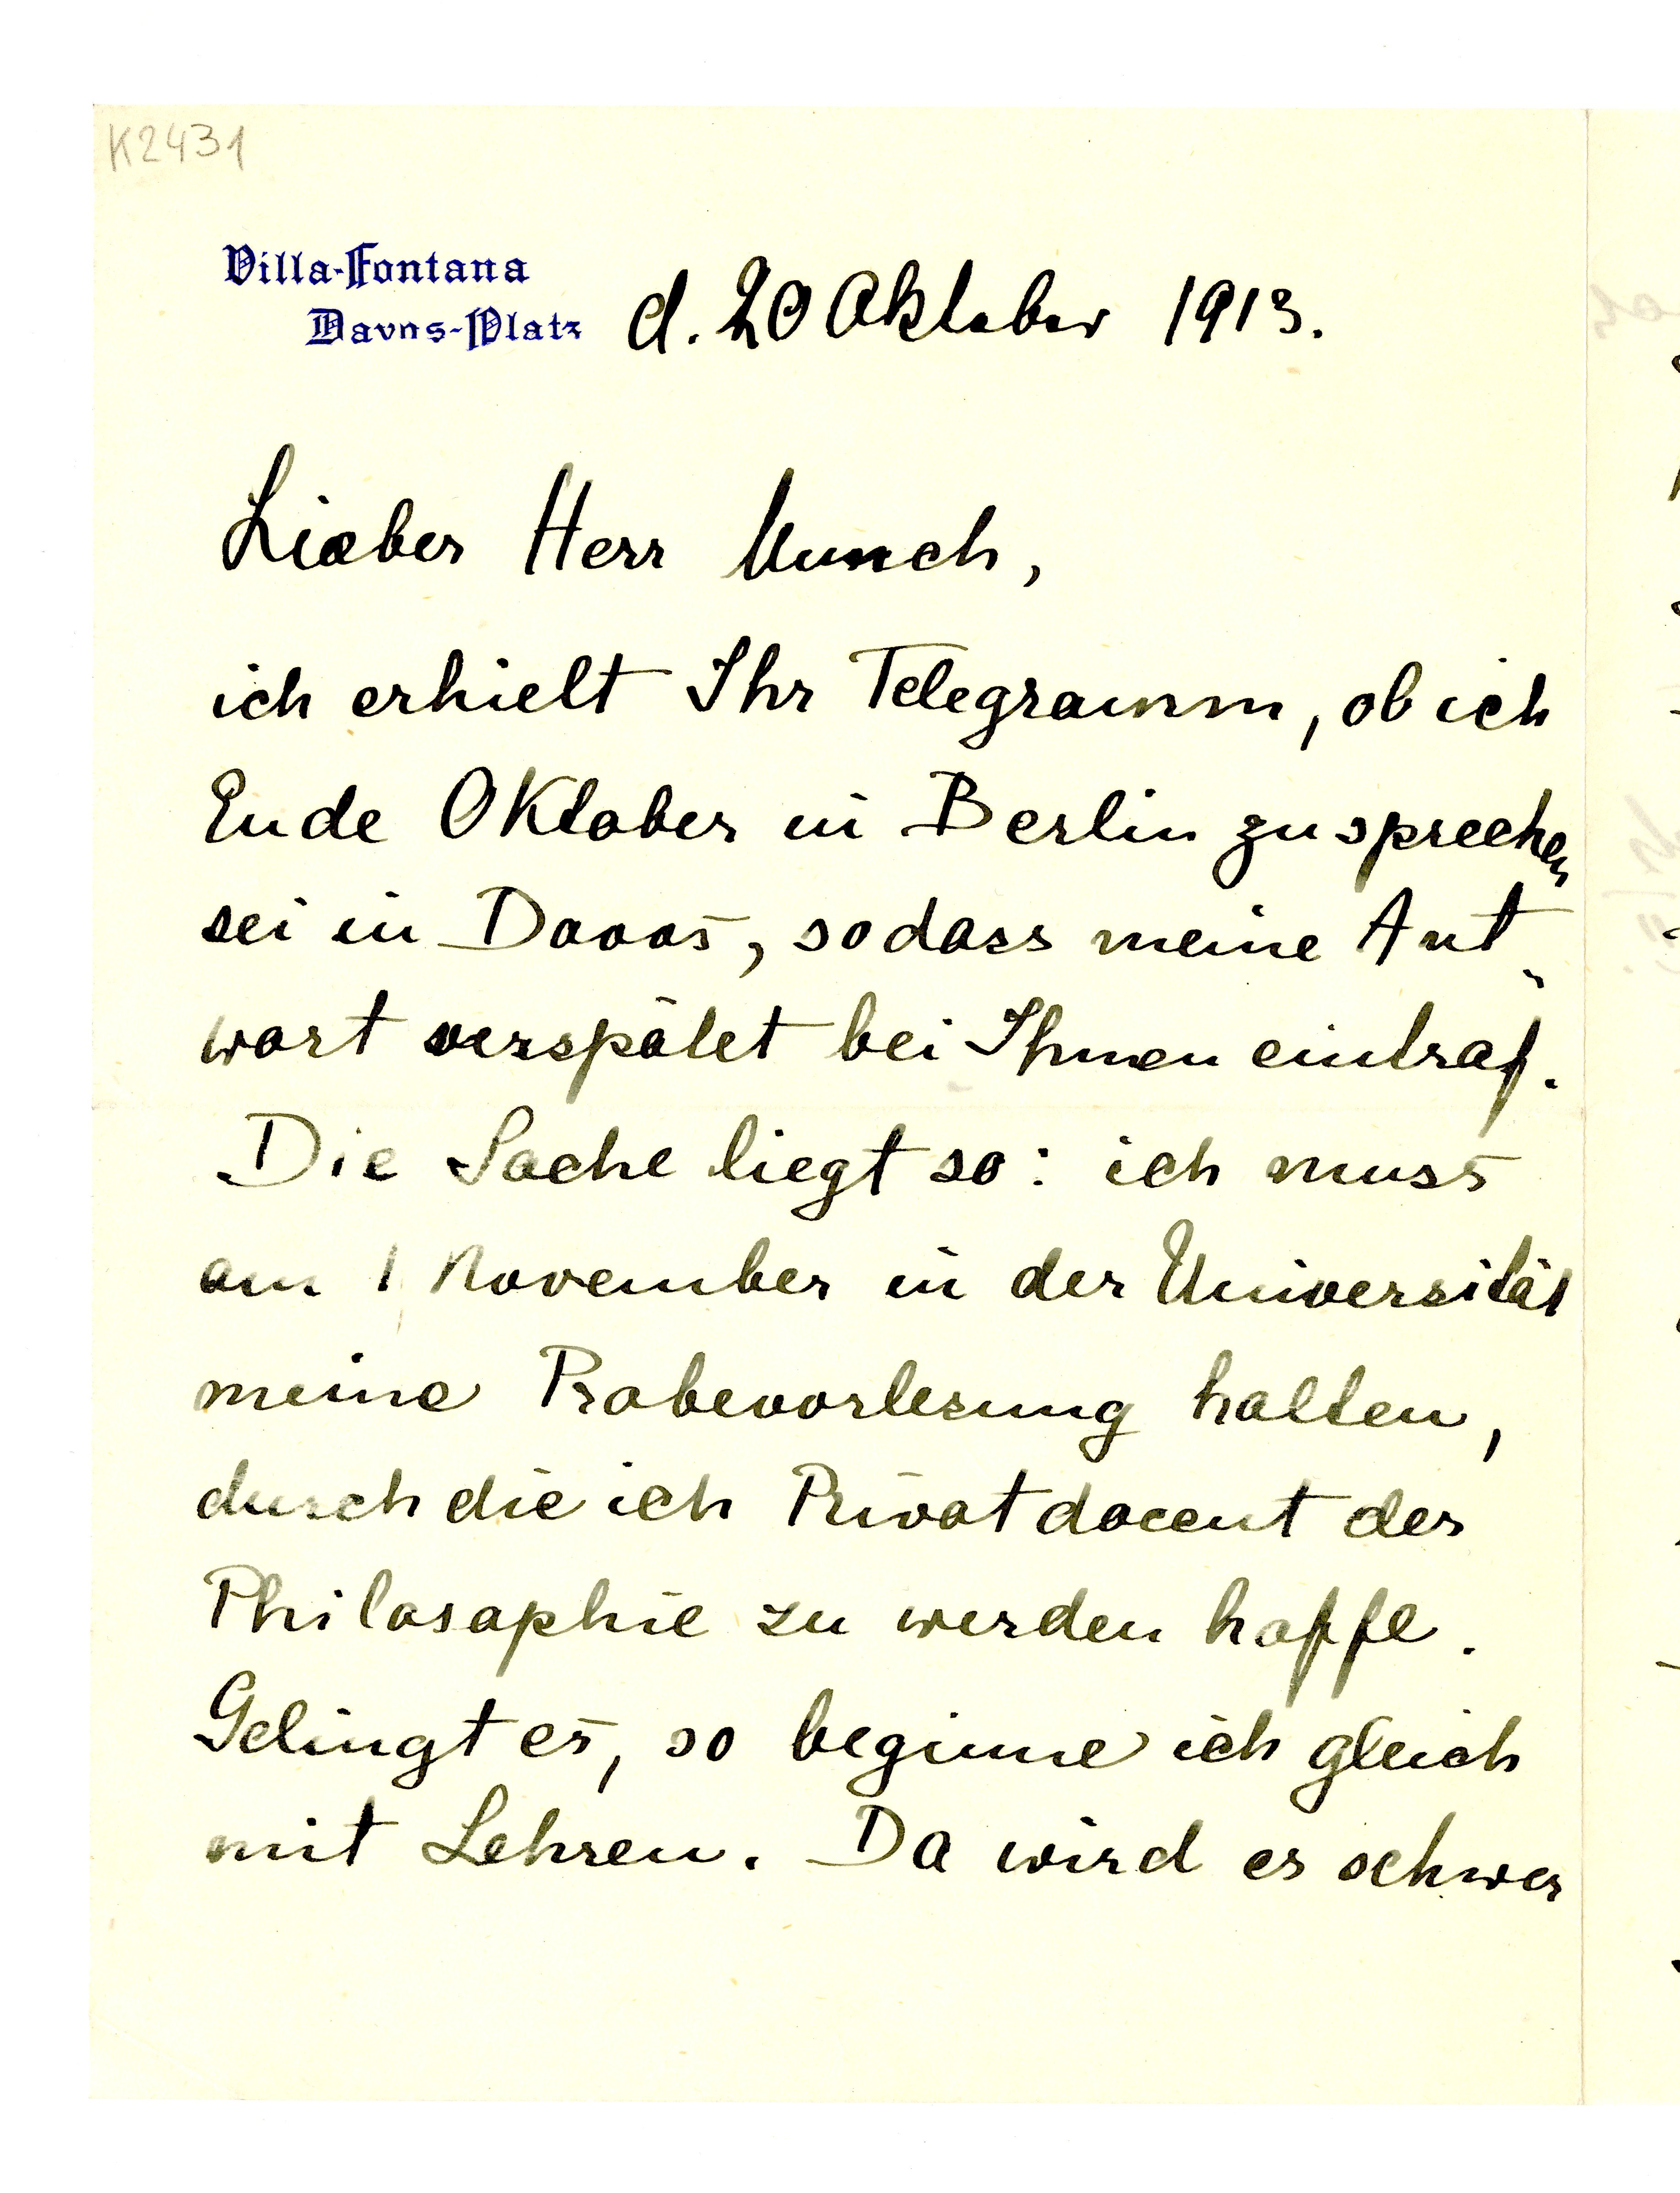 K2431
Villa-Fontana
Davos-Platz d. 20 Oktober 1913.
Lieber Herr Munch,
ich erhielt Ihr Telegramm, ob ich
Ende Oktober in Berlin zu sprechen
sei in Davos, sodass meine Ant-
wort verspätet bei Ihnen eintraf.
Die Sache liegt so: ich muss
am 1 November in der Universität
meine Probevorlesung halten,
durch die ich Privatdocent der
Philosophie zu werden hoffe.
Gelingt es, so beginne ich gleich
mit Lehren. Da wird es schwer